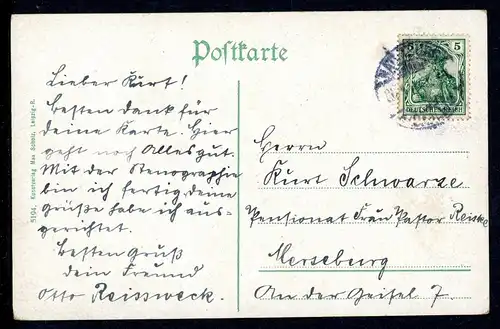 Postkarte
5
DEUTSCHES REICH
Lieber Kurt!
besten dank für
deine Karte. Hier
geht noch Alles gut.
Mit der Stenographie
bin ich fertig, deine
Grüße habe ich aus-
gerichtet.
besten Gruß
dein Freund
Otto Reissweck.
Herrn
Kurt Schwarze
Pensionat Frau Pastor Reiske
Merseburg
An der Geisel 7.
5104. Kunstverlag Max Leipzig-R.